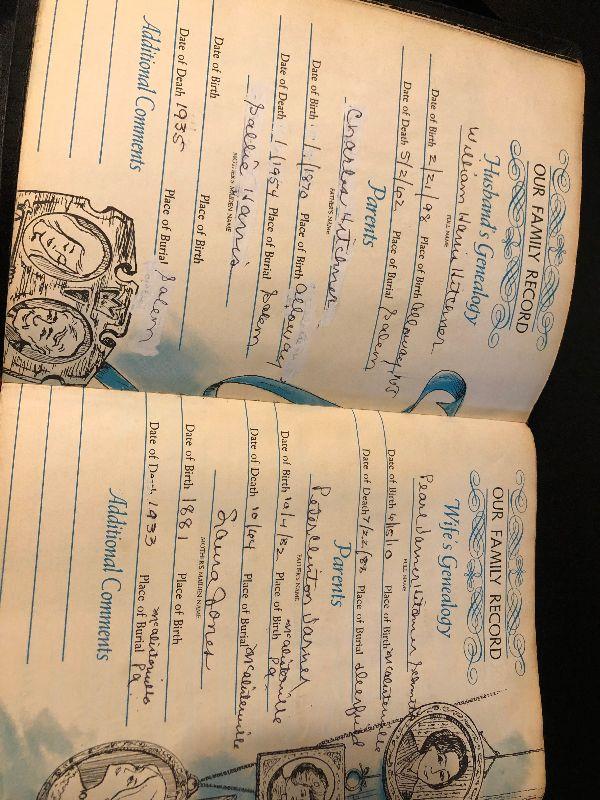 OUR FAMILY RECORD
Husband's Genealogy
William Harris Hitchner
FULL NAME
Date of Birth 2/21/98 Place of Birth Alloway, NJ
Date of Death 5/2/62 Place of Burial Salem
Parents
Charles Hitchner
FATHER'S NAME
Date of Birth 1/1/1870 Place of Birth Alloway
Date of Death 1/1/1954 Place of Burial Salem
Sallie Harris
MOTHER'S MAIDEN NAME
Date of Birth Place of Birth
Date of Death 1935 Place of Burial Salem
Additional Comments
OUR FAMILY RECORD
Wife's Genealogy
Pearl Varner Hitchner
FULL NAME
Date of Birth Place of Birth McAlisterville
Date of Death 7/22/88 Place of Burial Deerfield
Parents
Peter Clinton Varner
FATHER'S NAME
Date of Birth 10/4/82 Place of Birth McAlisterville Pa
Date of Death 10/44 Place of Burial McAlisterville
Laura Jones
MOTHER'S MAIDEN NAME
Date of Birth 1881 Place of Birth
Date of Death 1933 Place of Burial McAlisterville Pa
Additional Comments